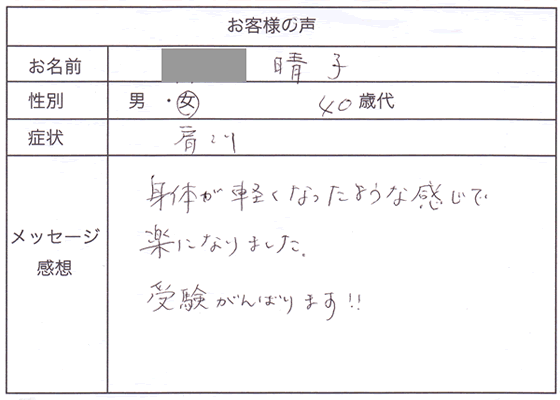 お客様の声
お名前 晴子
性別 男・女 40歳代
症状 肩こり
メッセージ
感想
身体が軽くなったような感じで
楽になりました。
受験がんばります!!